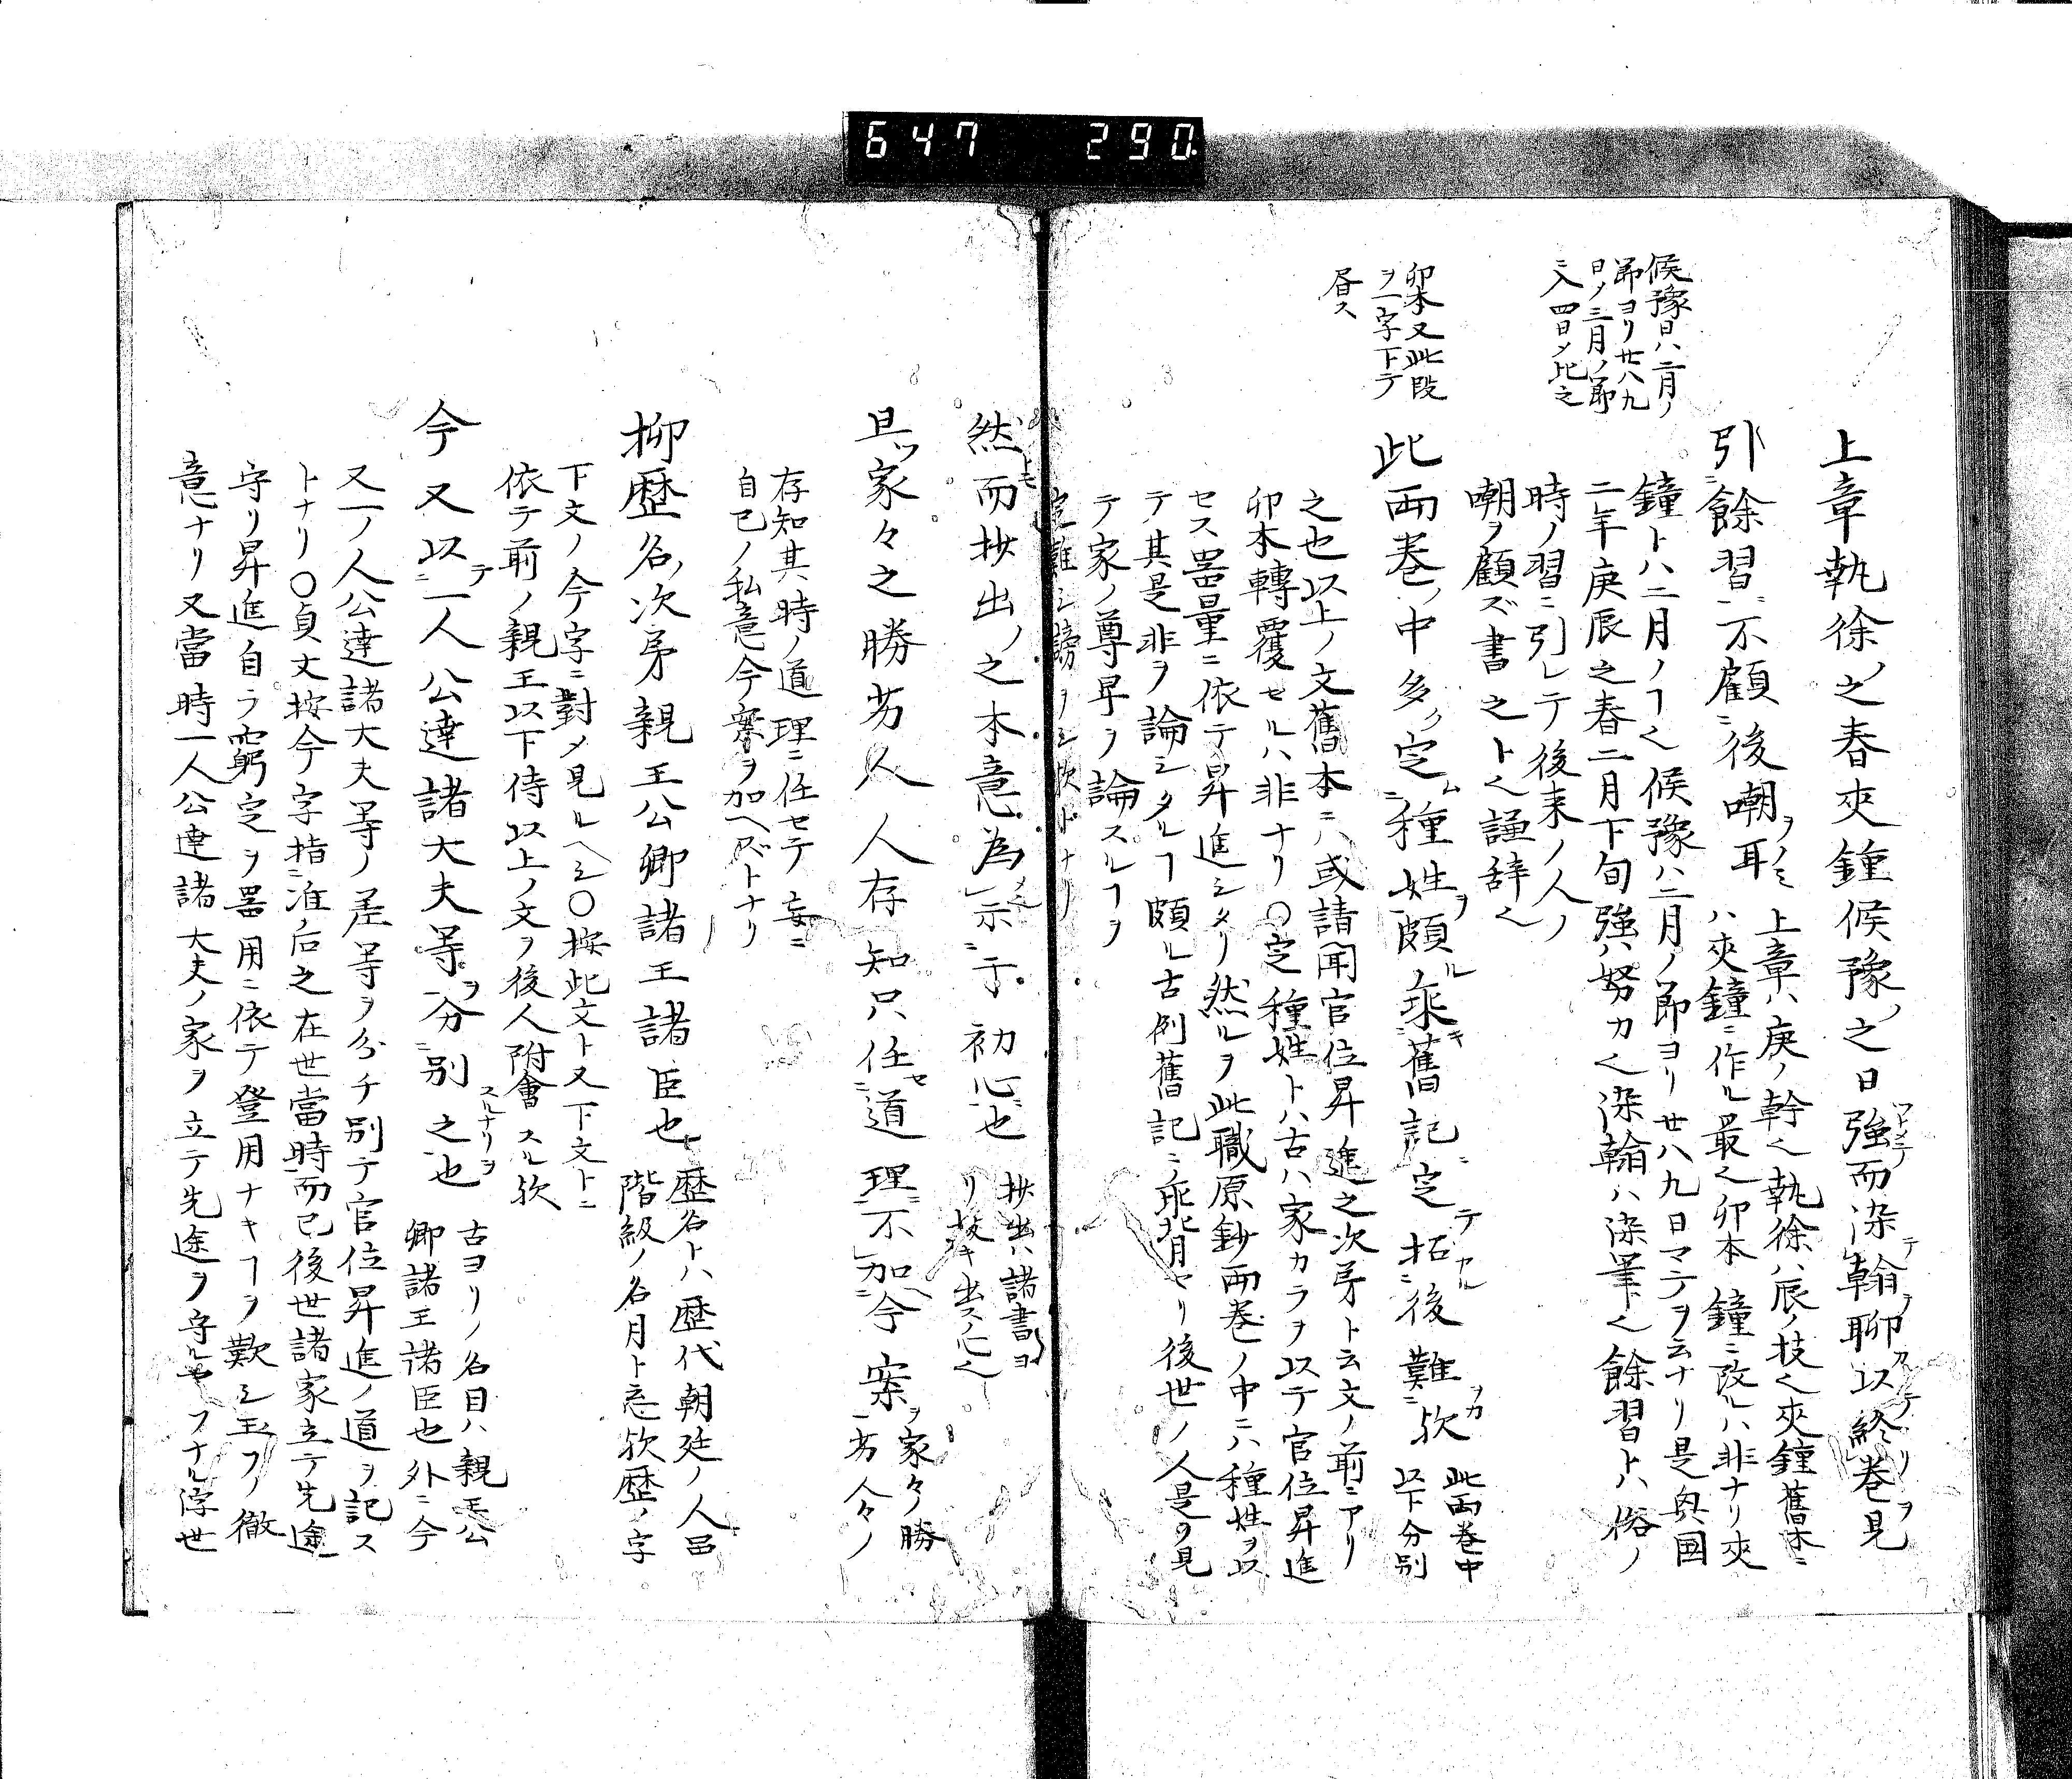 647 290
候豫日ハ二月ノ
節ヨリ廿八九
日ノ三月ノ節
ニ入四日メ比之
卯本又此段
ヲ一字下テ
書ス
上章執徐ノ之春夾鐘候豫ノ之日強而染翰聊以終巻見
引餘習不顧後嘲耳 上章ハ庚ノ幹く執徐ハ辰ノ枝く夾鐘舊本ニ
ハ夾鐘ニ作ル最く卯本鐘ニ改ルハ非ナリ夾
鐘トハ二月ノヿく候豫ハ二月ノ節ヨリ廿八九日マテヲ云ナリ是與國
二年庚辰之春二月下旬強ハ努力く染翰ハ染筆く餘習トハ俗ノ
時ノ習ニ引レテ後来ノ人ノ
嘲ヲ顧ズ書之トく謙辞く
此両巻ノ中多ク定種姓頗ル乖舊記ニ定テ拓後難欤 此両巻中
以下分別
之也以上ノ文舊本ニハ或諸聞官位昇進之次第ト云文ノ前ニアリ
卯本轉覆セルハ非ナリ〇定種姓トハ古ハ家カラヲ以テ官位昇進
セス器量ニ依テ昇進シタリ然ルヲ此職原鈔両巻ノ中ニハ種姓ヲ以
テ其是非ヲ論シタルヿ頗ル古例舊記ニ乖背セリ後世ノ人是ヲ見
テ家ノ尊卑ヲ論スルヿヲ
定難シ謗ヲシ欤トナリ
然而抄出ノ之本意為示于初心也 抄出ハ諸書ヨ
リ抜キ出スノ心く
且ツ家々之勝劣人人存知只任道理不加今案 家々ノ勝
劣人々ノ
存知其時ノ道理ニ任セテ妄ニ
自己ノ私意今案ヲ加ヘズトナリ
抑歴名ノ次第親王公卿諸王諸臣也 歴名トハ歴代朝廷ノ人品
階級ノ名月ト云欤歴ノ字
下文ノ今字ニ對メ見ルヘシ〇按此文ト又下文トニ
依テ前ノ親王以下侍以上ノ文ヲ後人附會スル欤
今又以一人公達諸大夫等分別之也 古ヨリノ名目ハ親王公
卿諸王諸臣也外ニ今
又一ノ人公達諸大夫等ノ差等ヲ分チ別テ官位昇進ノ道ヲ記ス
トナリ〇貞丈按今字指准ノ后之在世當時而已後世諸家立テ先途
守リ昇進自ラ窮定ヲ器用ニ依テ登用ナキヿヲ歎シ玉フノ徹
意ナリ又當時一人公達諸大夫ノ家ヲ立テ先途ヲ守ルヤフナル浮世